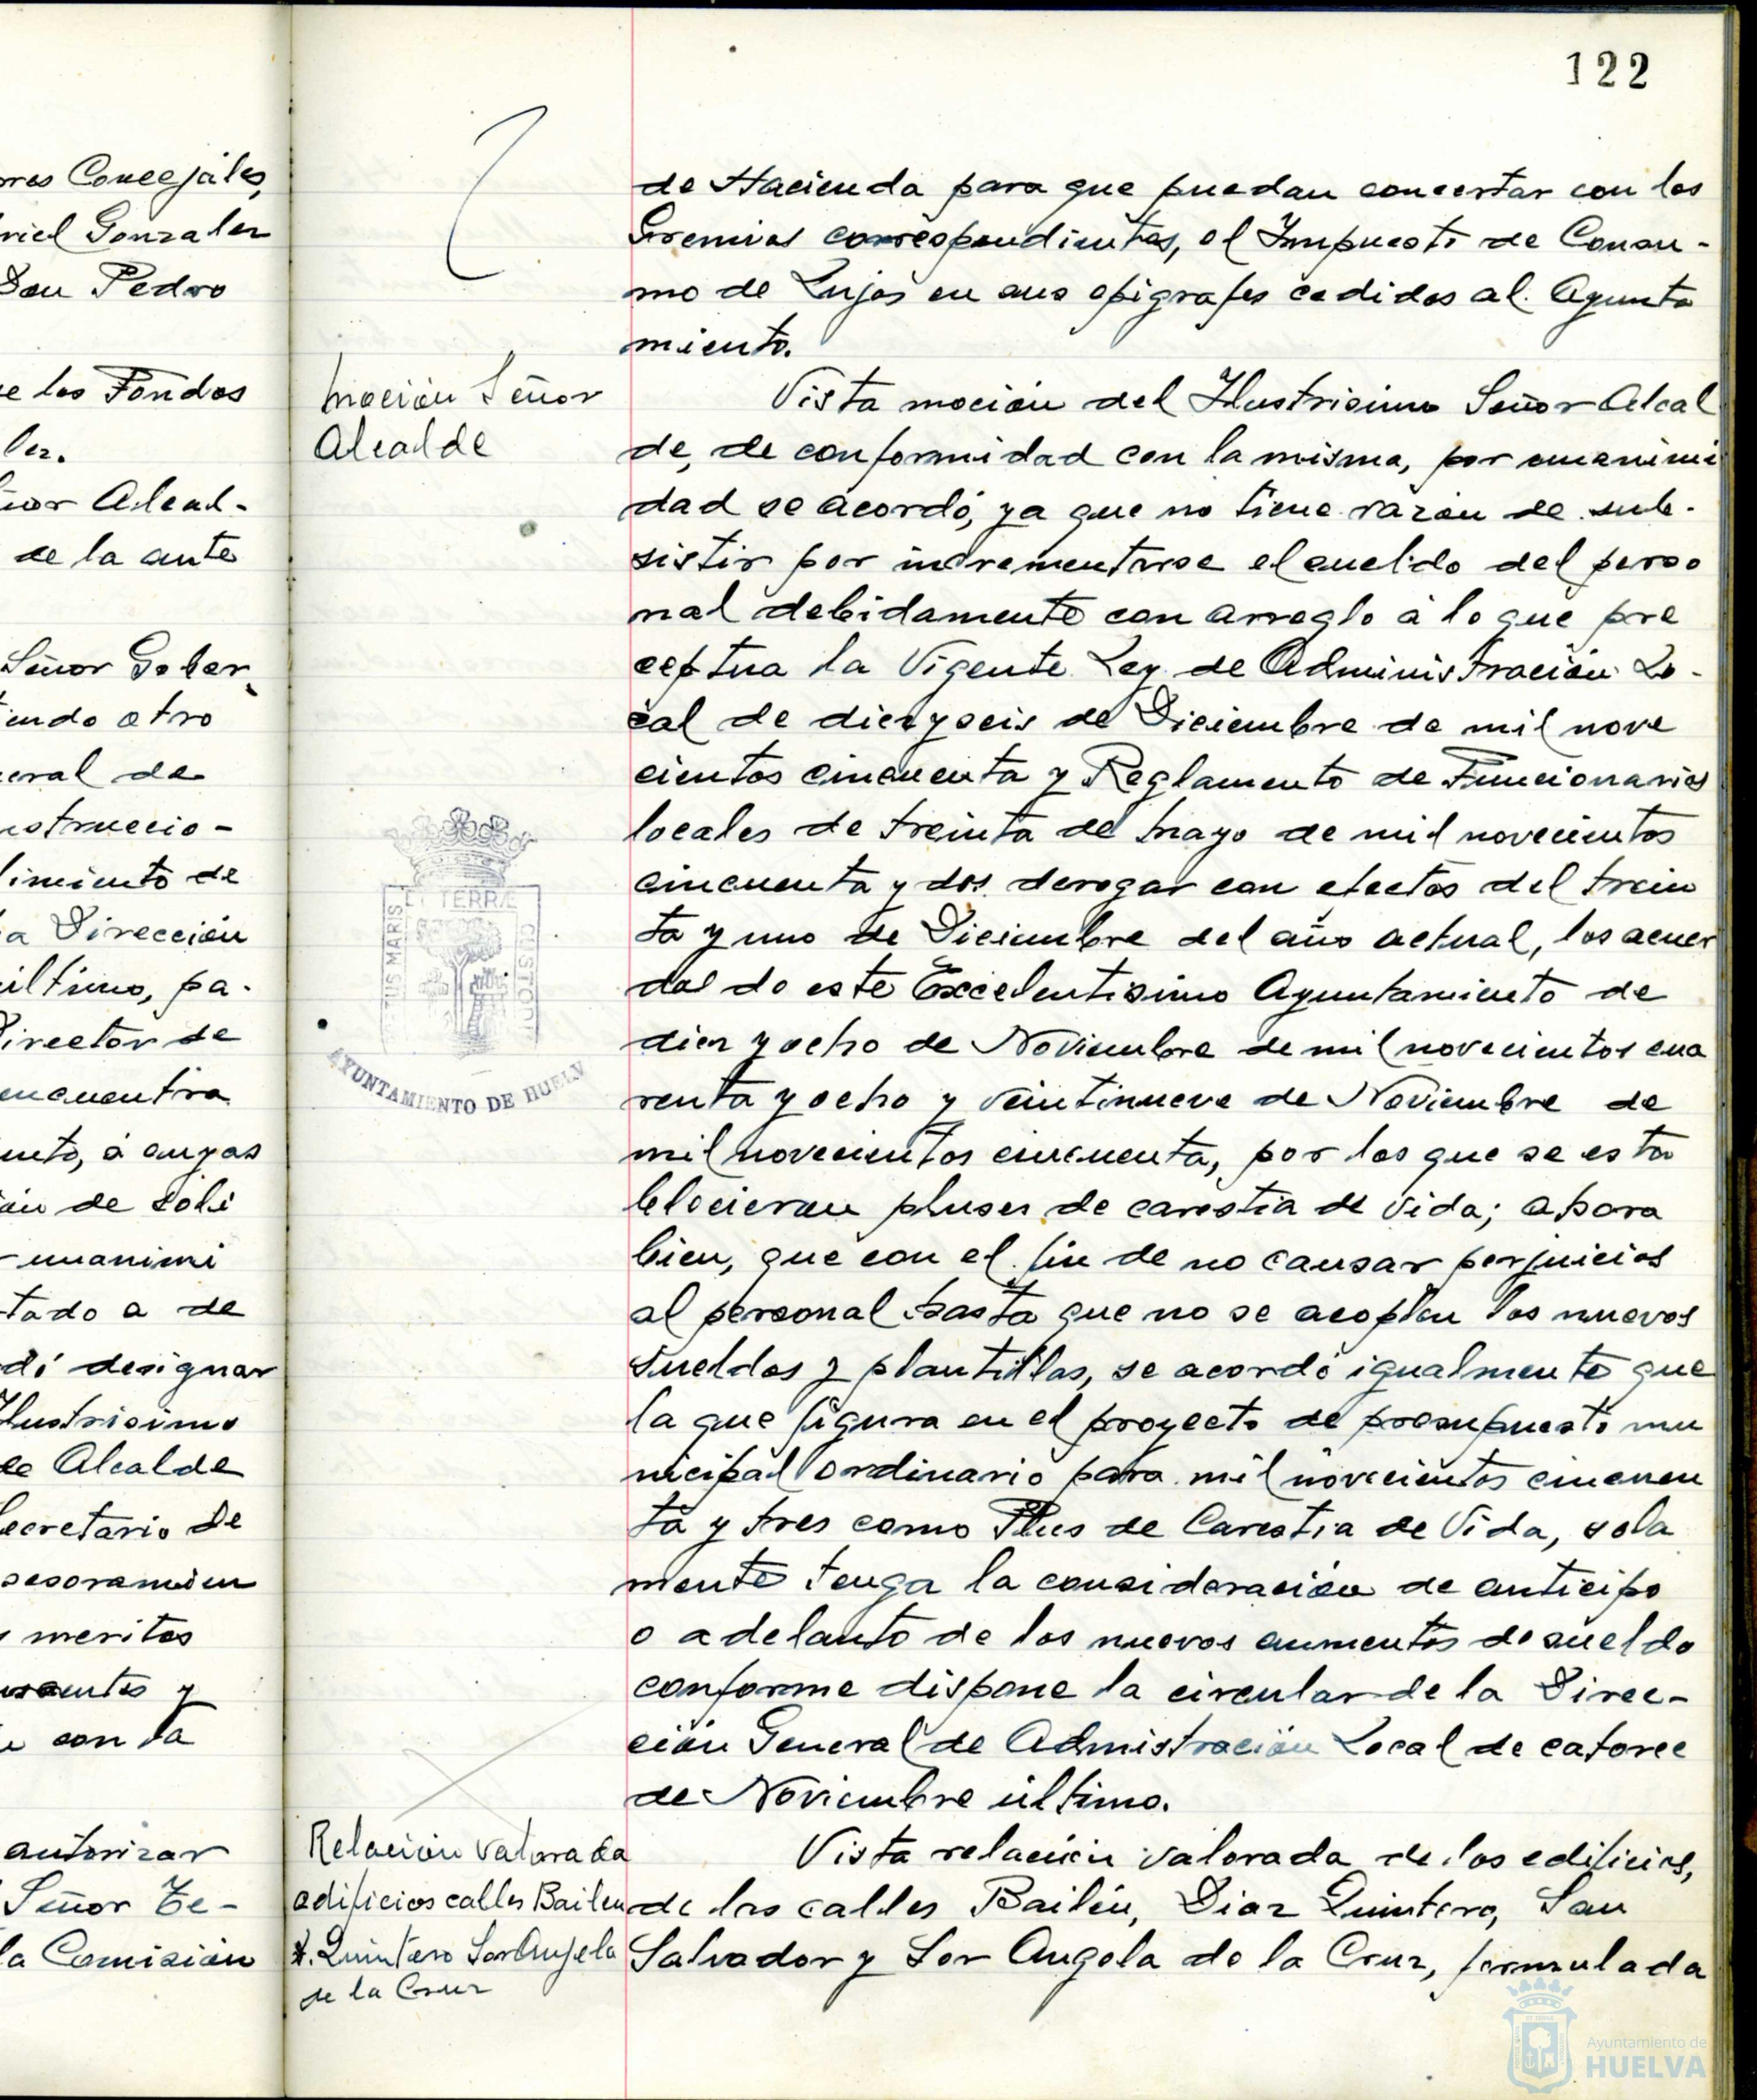 122
ores Concejales,
riel Gonzalez
Don Pedro
e los Fondos
lez.
ñor Alcal-
de la ante
Señor Gober
iendo otro
neral de
nstruccio-
limiento de
la Dirección
ultimo, pa-
Director de
encuentra
ento, á cuyas
ón de soli
unanimi
tado a de
dó designar
Ilustrisimo
de Alcalde
Secretario de
sesoramien
y meritos
y
con la
autorizar
Señor Te-
la Comisión
de Hacienda para que puedan concertar con los
Gremios correspondientes, el Impuesto de Consu-
mo de Lujos en sus epigrafes cedidos al Ayunta
miento.
Moción Señor
Alcalde
Vista moción del Ilustrisimo Señor Alcal
de, de conformidad con la misma, por unanimi
dad se acordó, ya que no tiene razón de sub-
sistir por incrementarse el sueldo del perso
nal debidamente con arreglo á lo que pre
ceptua la Vigente Ley de Administración Lo-
cal de diez y seis de Diciembre de mil nove
cientos cincuenta y Reglamento de Funcionarios
locales de treinta de Mayo de mil novecientos
cincuenta y dos derogar con efectos del trein
ta y uno de Diciembre del año actual, los acuer
dos de este Excelentisimo Ayuntamiento de
diez y ocho de Noviembre de mil novecientos cua
renta y ocho y veintinueve de Noviembre de
mil novecientos cincuenta, por los que se esta
blecieron pluses de carestia de vida; ahora
bien, que con el fin de no causar perjuicios
al personal hasta que no se acoplen los nuevos
sueldos y plantillas, se acordó igualmente que
la que figura en el proyecto de presupuesto mu
nicipal ordinario para mil novecientos cincuen
ta y tres como Plus de Carestia de Vida, sola
mente tenga la consideración de anticipo
o adelanto de los nuevos aumentos de sueldo
conforme dispone la circular de la Direc-
ción General de Admistración Local de catorce
de Noviembre último.
Relación valorada
edificios calles Bailen
D. Quintero Sor Angela
de la Cruz
Vista relación valorada de los edificios,
de las calles Bailén, Diaz Quintero, San
Salvador y Sor Angela de la Cruz, formulada
ET TERRÆ
PORTUS MARIS
CUSTODI
AYUNTAMIENTO DE HUELV
Ayuntamiento de
HUELVA